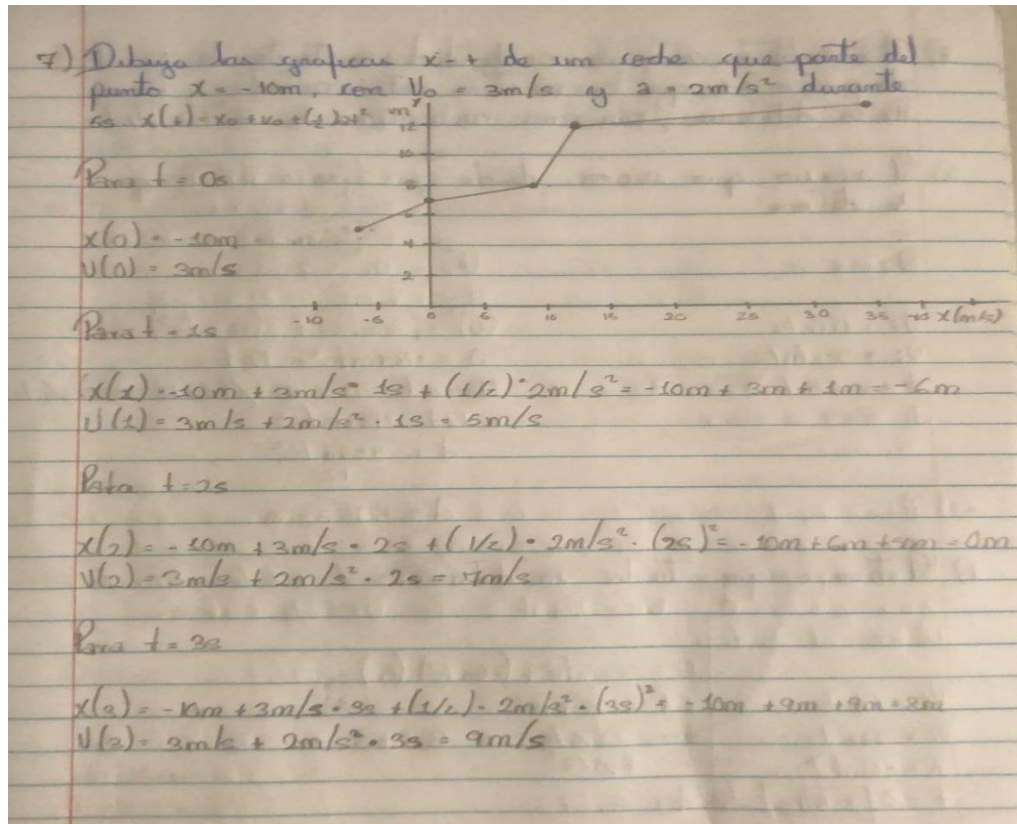 7) Dibuja las graficas x-t de un coche que parte del
punto x = -10m, con V₀ = 3m/s y a = 2m/s² durante
5s x(t) = x₀ + v₀ + (½) at² m
12
10
8
6
4
2
-10 -5 0 5 10 15 20 25 30 35 x(m/s)
Para t = 0s
x(0) = -10m
V(0) = 3m/s
Para t = 1s
x(1) = -10m + 3m/s · 1s + (1/2) · 2m/s² = -10m + 3m + 1m = -6m
V(1) = 3m/s + 2m/s² · 1s = 5m/s
Para t = 2s
x(2) = -10m + 3m/s · 2s + (1/2) · 2m/s² · (2s)² = -10m + 6m + 4m = 0m
V(2) = 3m/s + 2m/s² · 2s = 7m/s
Para t = 3s
x(3) = -10m + 3m/s · 3s + (1/2) · 2m/s² · (3s)² = -10m + 9m + 9m = 8m
V(3) = 3m/s + 2m/s² · 3s = 9m/s